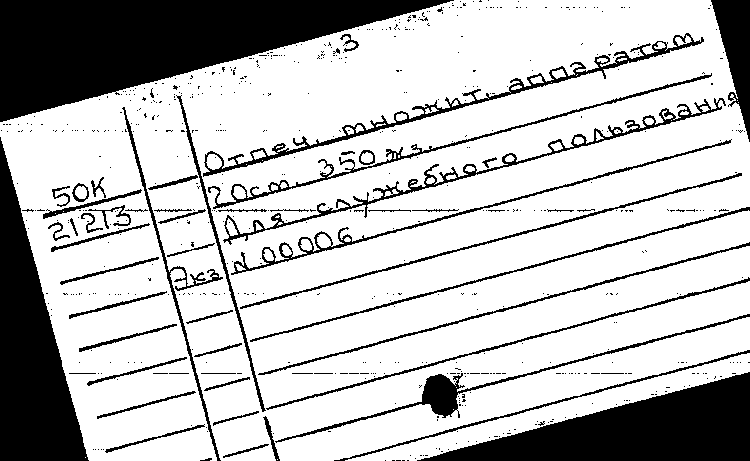 3
Отпеч. множит. аппаратом
50К 20ст. 350 жз.
21213 Для служебного пользования
Экз N 00006.